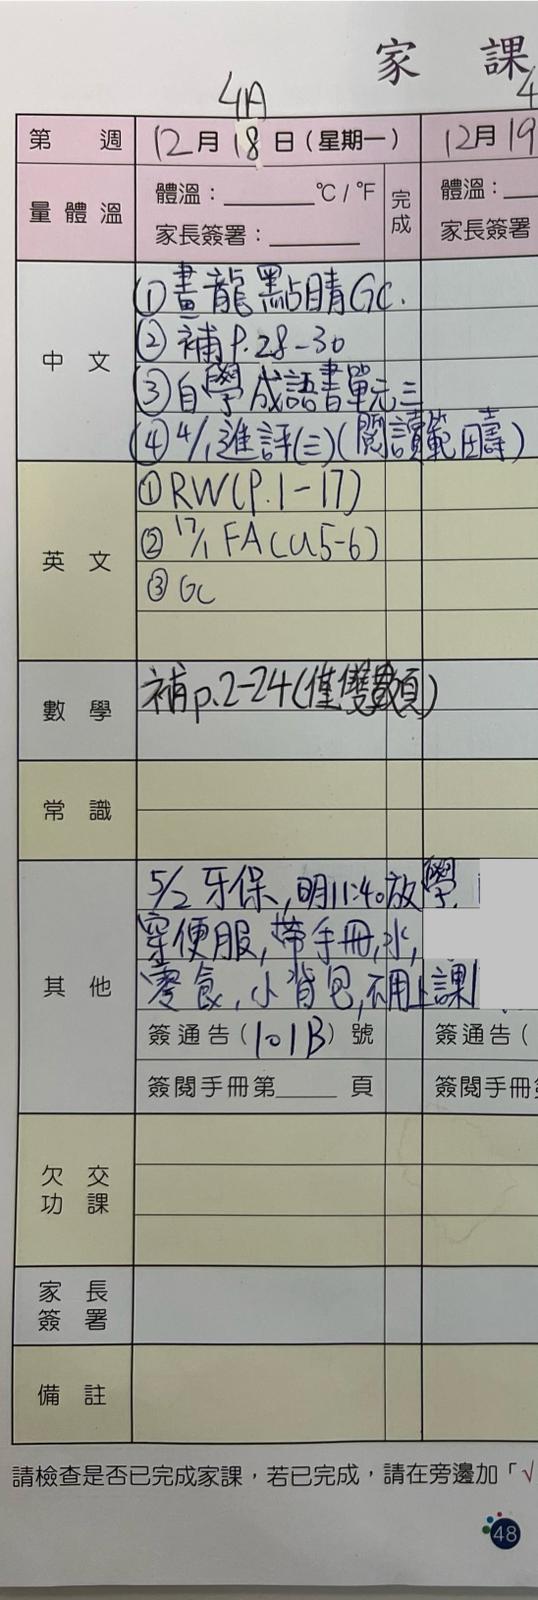 家 課
4A
4
第 週 12月18日(星期一) 12月19
量體溫 體溫：______℃/℉ 完成 體溫：
家長簽署：______ 家長簽署
中 文 ①畫龍點睛GC.
②補P.28-30
③自學成語書單元三
④4/1進評(三)(閱讀範疇)
英 文 ①RW(P.1-17)
②17/1 FA(U5-6)
③GC
數 學 補p.2-24(僅雙數頁)
常 識
其 他 5/2牙保,明11:40放學.
穿便服,帶手冊,水,
零食,小背包,不用上課
簽通告(101B)號 簽通告(
簽閱手冊第____頁 簽閱手冊
欠 交
功 課
家 長
簽 署
備 註
請檢查是否已完成家課，若已完成，請在旁邊加「√
48